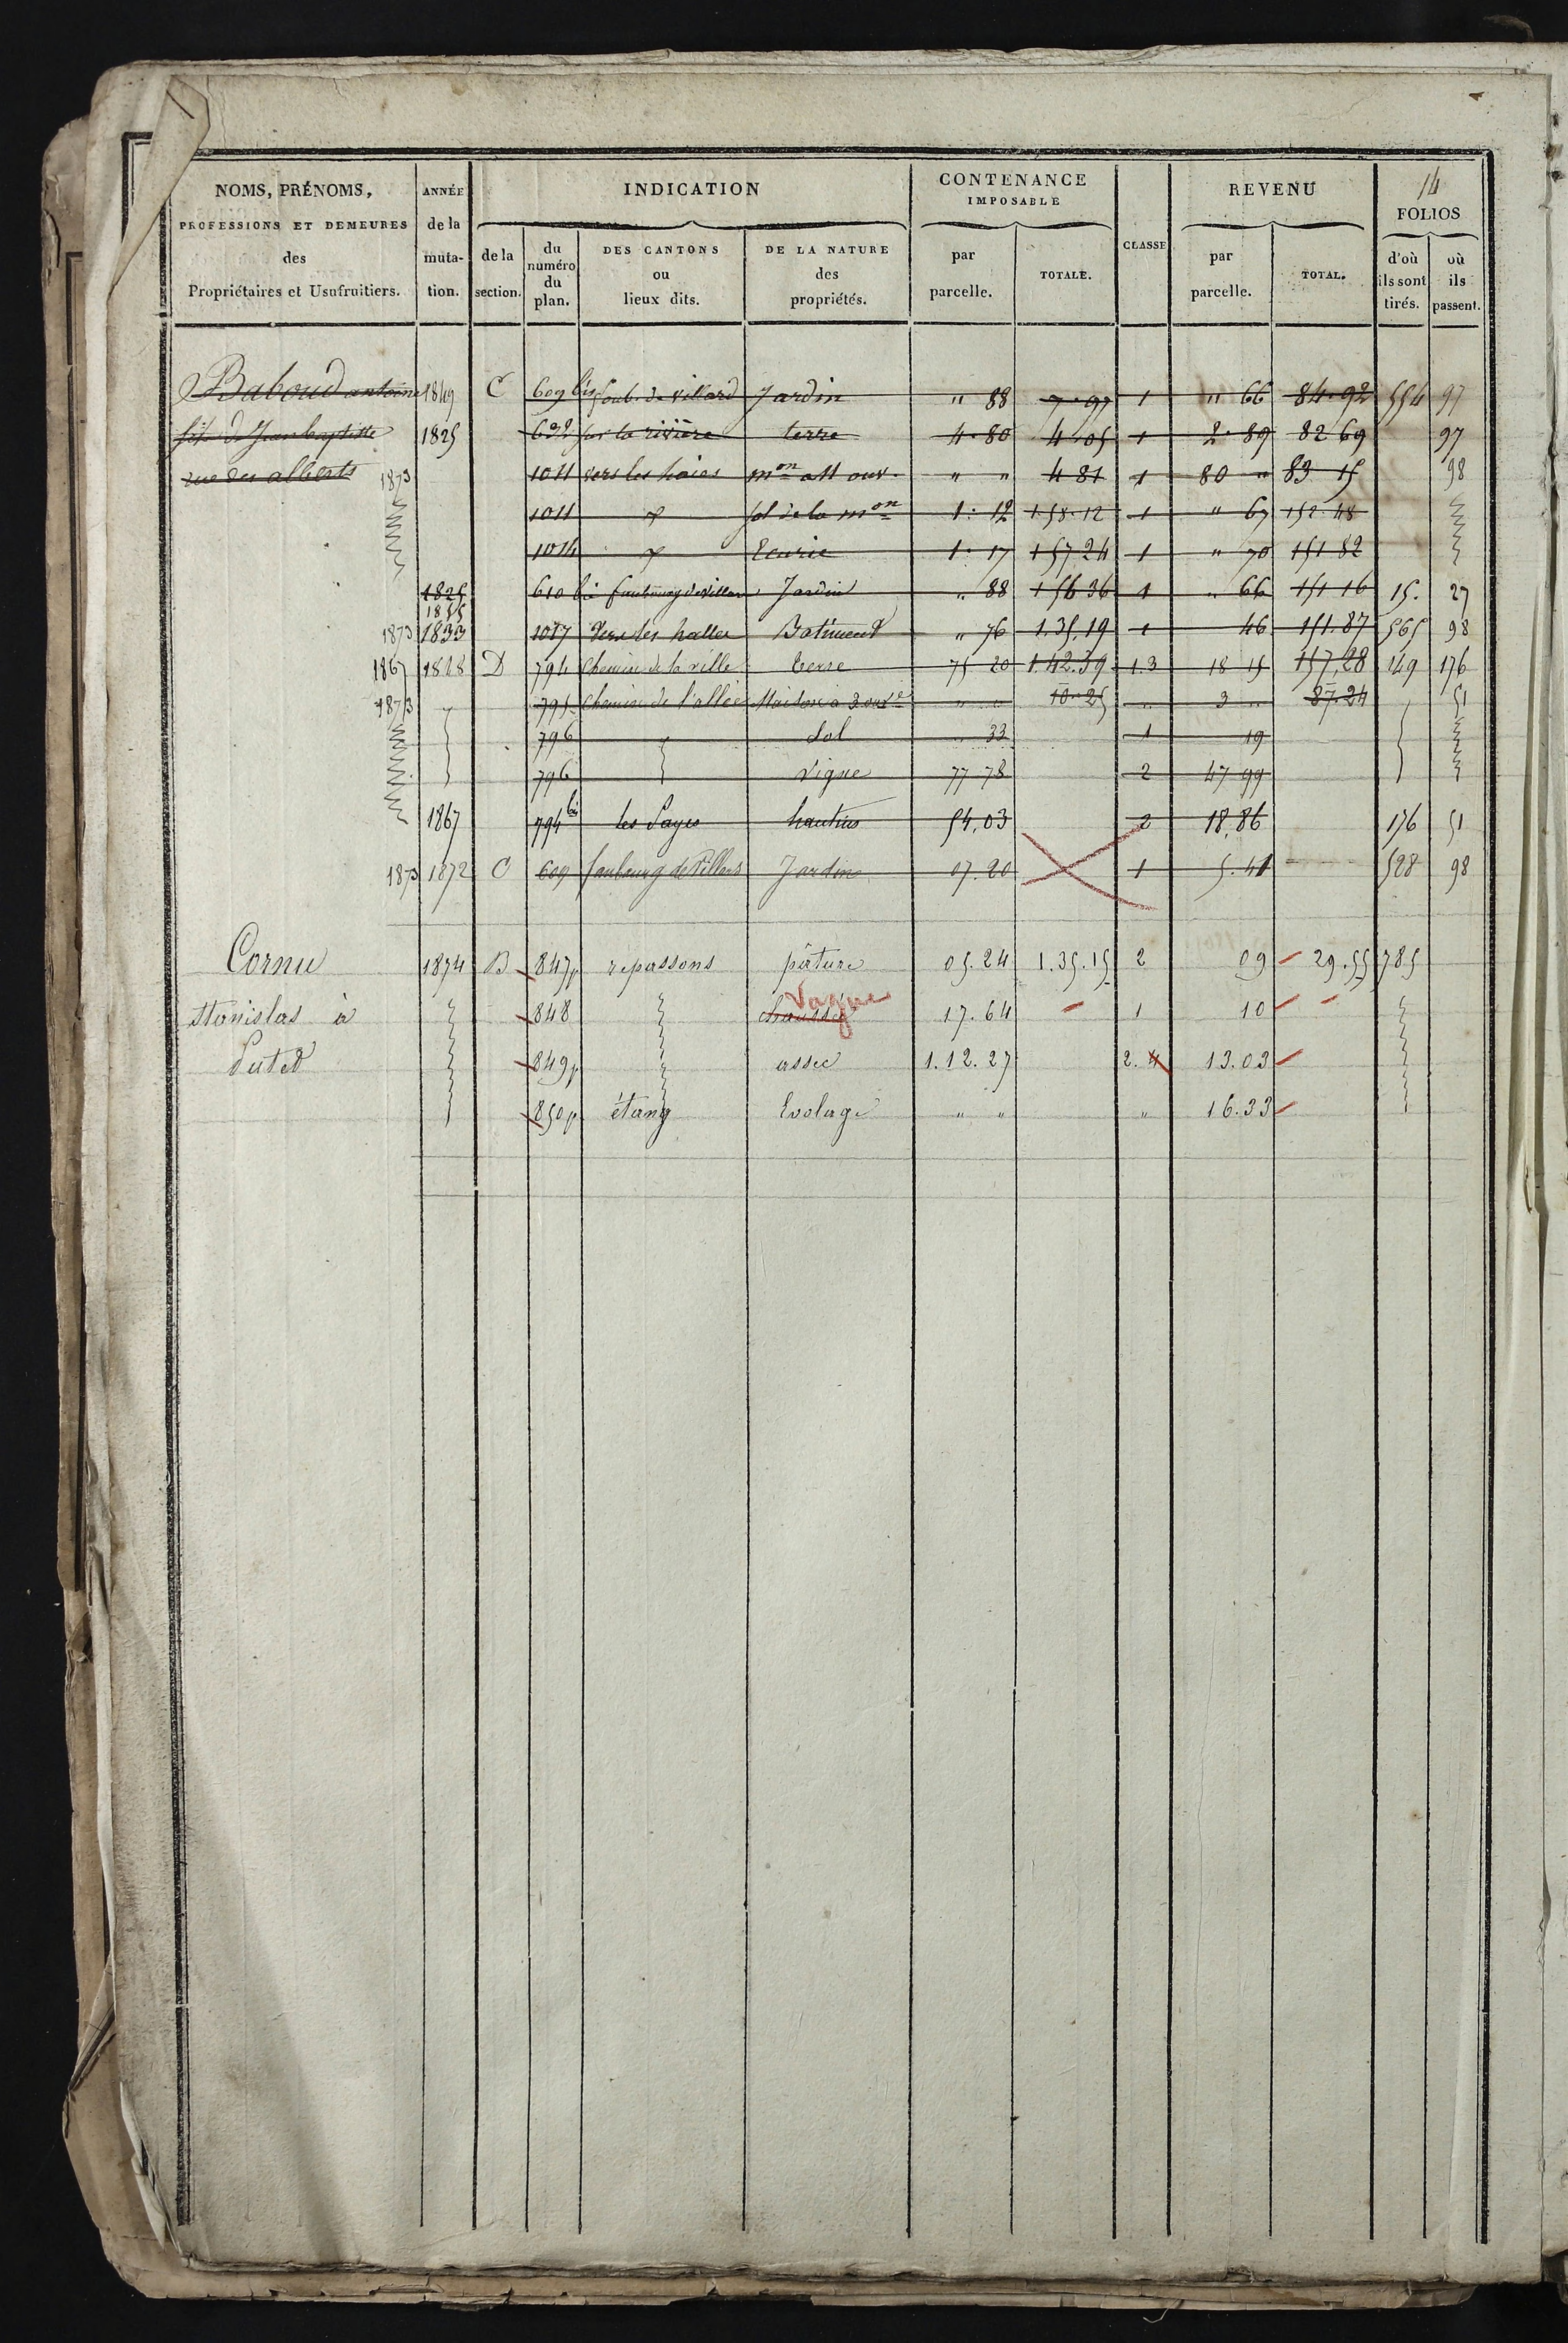 14
NOMS, PRÉNOMS, PROFESSIONS ET DEMEURES des Propriétaires et Usufruitiers.
ANNÉE de la muta- tion.
INDICATION
de la section.
du numéro du plan.
DES CANTONS ou lieux dits.
DE LA NATURE des propriétés.
CONTENANCE IMPOSABLE
par parcelle.
TOTALE.
CLASSE
REVENU
par parcelle.
TOTAL.
FOLIOS
d'où ils sont tirés.
où ils passent.
Baboud antoine 1849 C 609 bis faub. de villard Jardin " 88 7.97 1 " 66 84.92 554 97
fils d Jean baptiste 1825 632 sur la rivière terre 4.80 4.05 1 2.89 82 69 97
rue des alberts 1873 1011 vers les haies mon a 11 ouv. " " 4 81 1 80 " 83 15 98
1011 sol de la mon 1.12 1.58.12 1 " 67 152.48
1014 Ecurie 1.17 157 24 1 " 70 151 82
1825 610 bis faubourg de villars Jardin " 88 156 36 1 " 66 151 16 15. 27
1873 1833 1017 Vers les halles Batiment " 76 1.35.19 1 46 151.87 565 98
1867 1828 D 794 Chemin de la ville terre 75 20 1.42.39 1.3 18 15 157,28 149 176
1873 795 Chemin de l'allée Maison à 3 ouvre " " 10-25 " 3 " 87.24 51
796 Sol " 33 1 19
796 vigne 77 78 2 47 99
1867 794 bis les Payes hautins 54,03 2 18,86 176 51
1873 1872 C 609 faubourg de Villars Jardin 07.20 1 5.41 528 98
Cornu 1874 B 847p repassons pâture 05.24 1.35.15 2 09 29.55 785
Stanislas à 848 chaussée Vague 17.64 1 10
849p assec 1.12.27 2.4 13.03
850p étang Evolage " " " 16.33